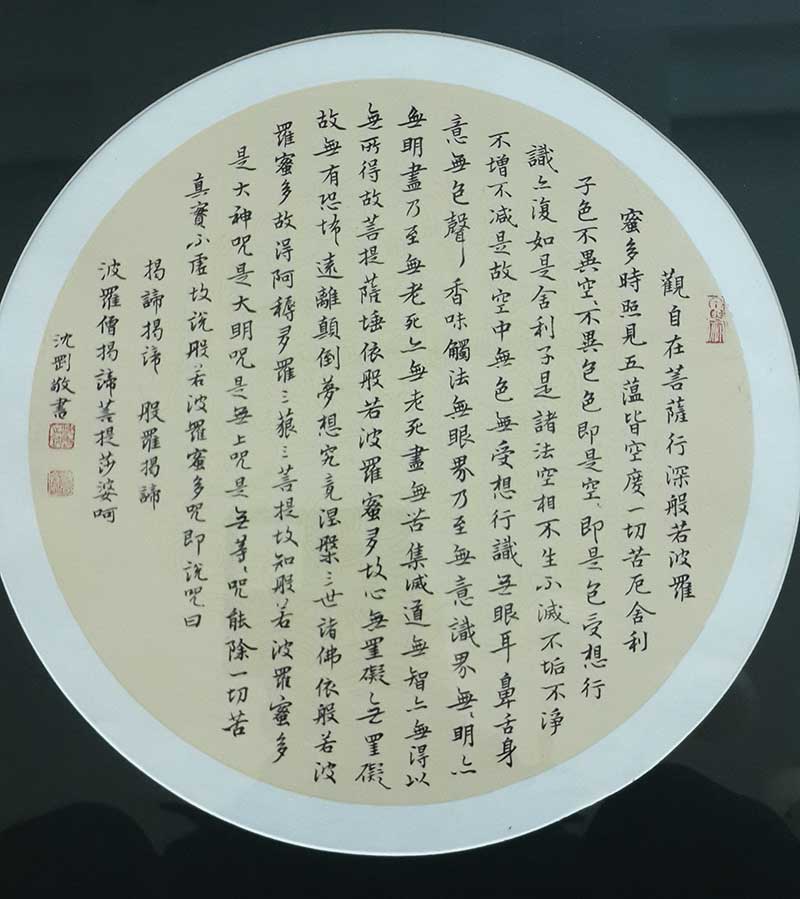 觀自在菩薩行深般若波羅
蜜多時照見五蘊皆空度一切苦厄舍利
子色不異空、不異色色即是空、即是色受想行
識亦復如是舍利子是諸法空相不生不滅不垢不淨
不增不減是故空中無色無受想行識無眼耳鼻舌身
意無色聲香味觸法無眼界乃至無意識界無、明亦
無明盡乃至無老死亦無老死盡無苦集滅道無智亦無得以
無所得故菩提薩埵依般若波羅蜜多故心無罣礙、無罣礙
故無有恐怖遠離顛倒夢想究竟涅槃三世諸佛依般若波
羅蜜多故得阿耨多羅三藐三菩提故知般若波羅蜜多
是大神咒是大明咒是無上咒是無等、咒能除一切苦
真實不虛故說般若波羅蜜多咒即說咒曰
揭諦揭諦 般羅揭諦
波羅僧揭諦菩提莎婆呵
沈剛敬書